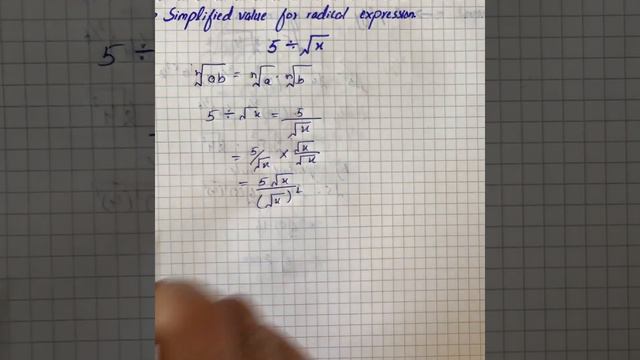 Simplified value for radical expression.
5 ÷ √x
ⁿ√ab = ⁿ√a · ⁿ√b
5 ÷ √x = 5/√x
= 5/√x × √x/√x
= 5√x/(√x)²
5 ÷